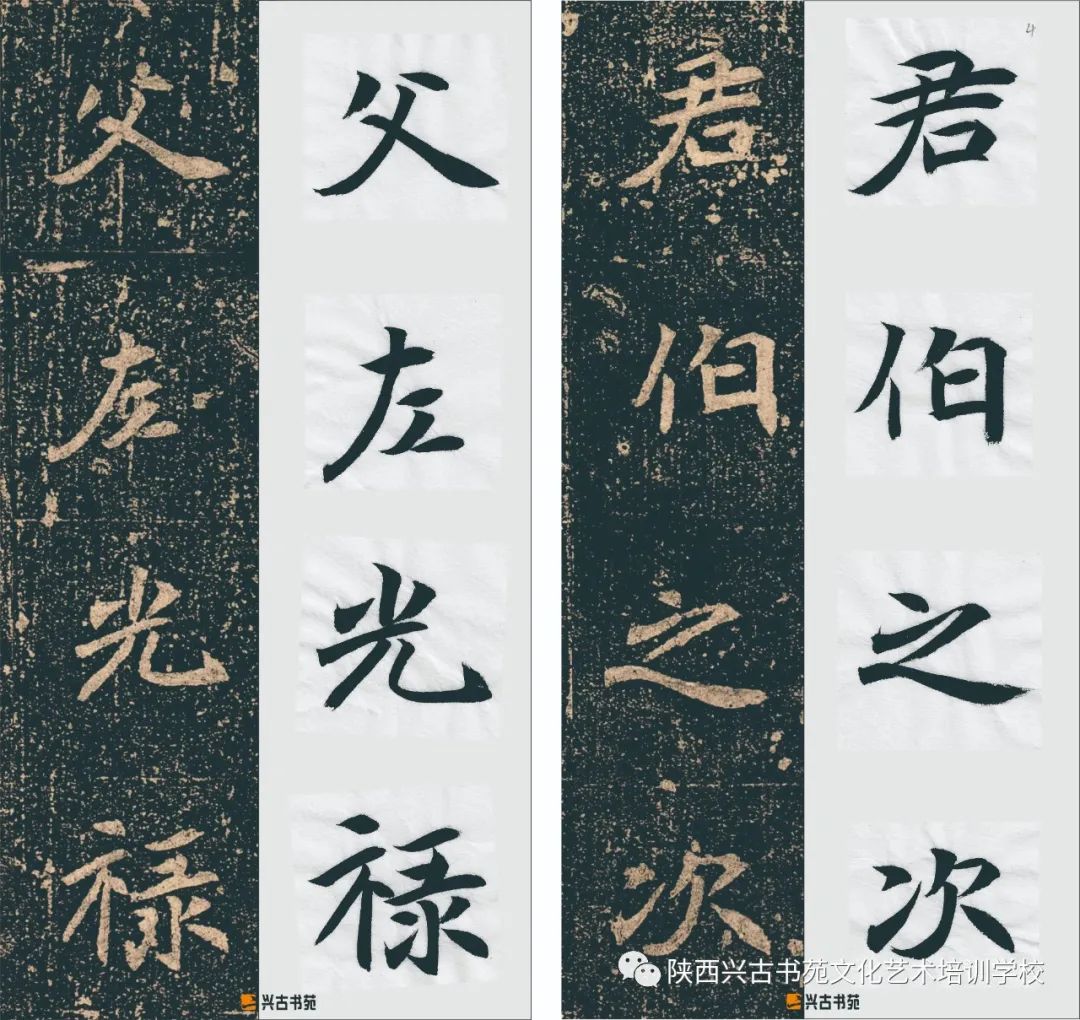 父 父
左 左
光 光
禄 禄
兴古书苑
4
君 君
伯 伯
之 之
次 次
陕西兴古书苑文化艺术培训学校
兴古书苑